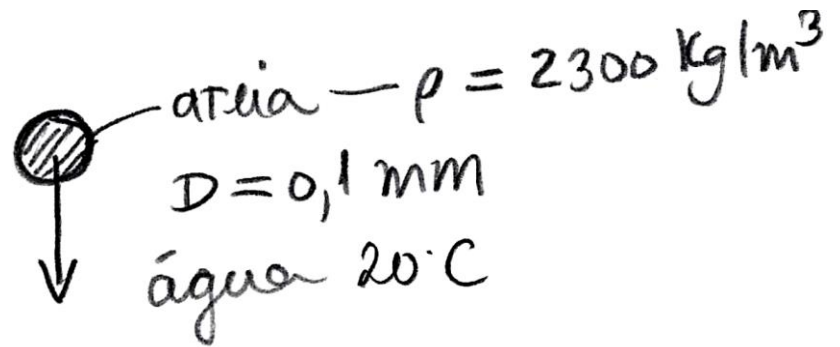 areia — ρ = 2300 Kg/m³
D = 0,1 mm
água 20°C